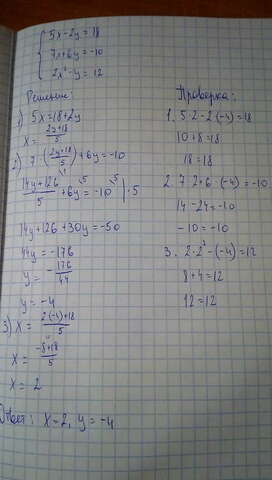 5x-2y=18
7x+6y=-10
2x²-y=12
Решение:
1) 5x=18+2y
x=\frac{2y+18}{5}
2) 7·(\frac{2y+18}{5})+6y=-10
\frac{14y+126}{5}+6y=-10 |·5
14y+126+30y=-50
44y=-176
y=-\frac{176}{44}
y=-4
3) x=\frac{2(-4)+18}{5}
x=\frac{-8+18}{5}
x=2
Ответ: x=2, y=-4
Проверка:
1. 5·2-2·(-4)=18
10+8=18
18=18
2. 7·2+6·(-4)=-10
14-24=-10
-10=-10
3. 2·2²-(-4)=12
8+4=12
12=12